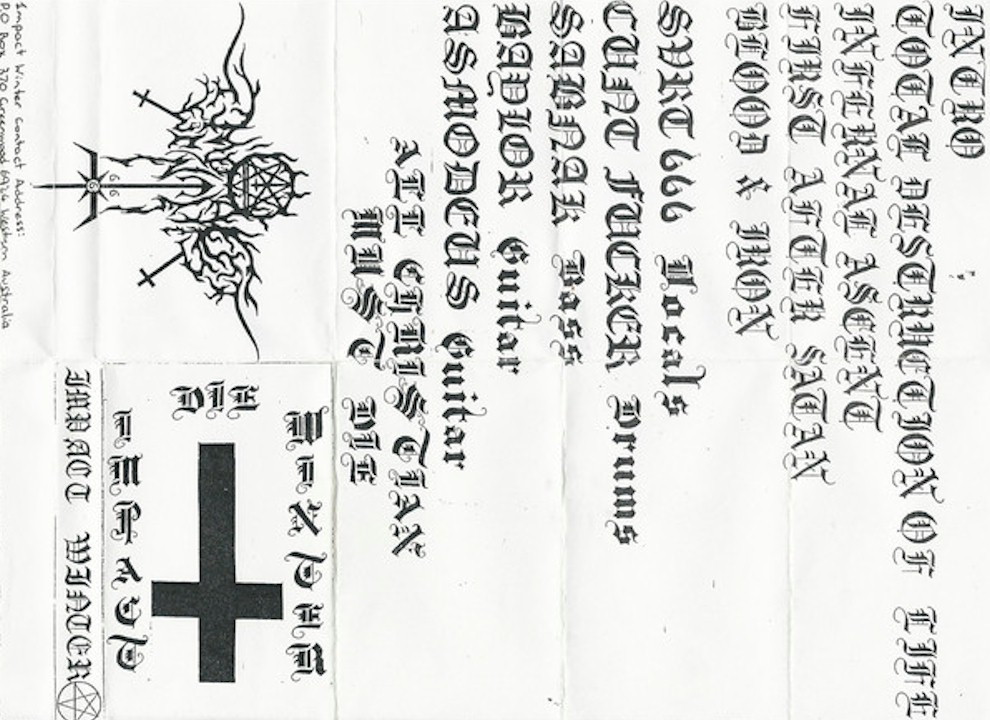 INTRO
TOTAL DESTRUCTION OF LIFE
INFERNAL ASCENT
FIRST AFTER SATAN
BLOOD & IRON
SVRT 666 Vocals
CUNT FUCKER Drums
SABNAK Bass
Guitar
ASMODEUS Guitar
ALL CHRISTIAN
MUST DIE
666
IMPACT WINTER
Impact Winter Contact Address:
P.O Box 370 Greenwood 6924 Western Australia